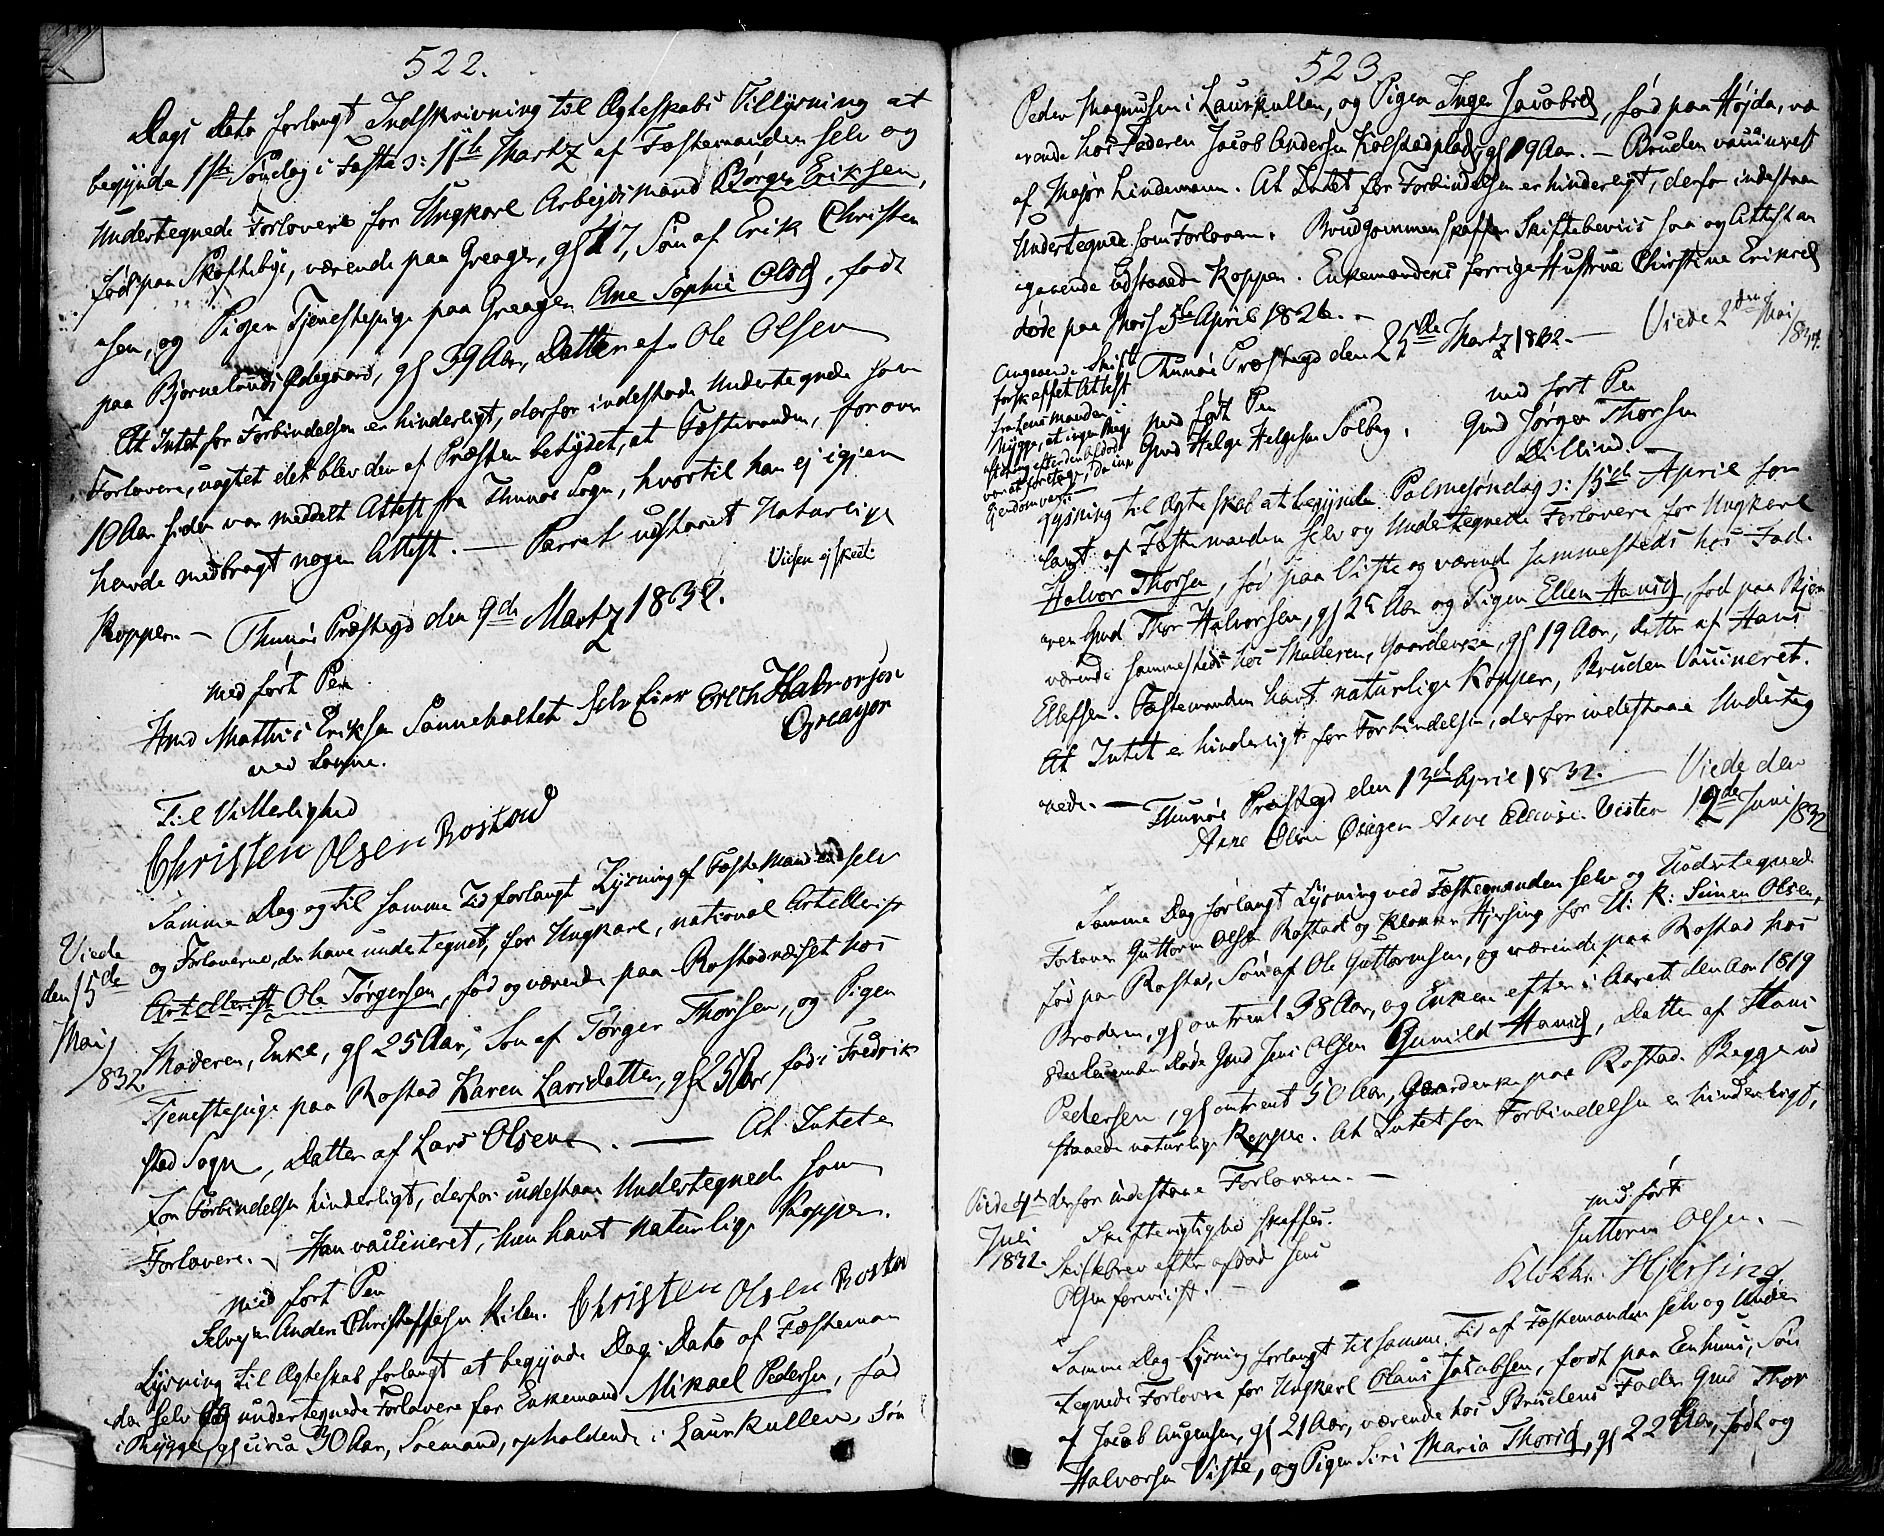 522.
Dags Dato forlangt Indskrivning til Ægteskabs Tillysning at
begynde 1ste Søndag i Faste s: 11te Martz af Fæstemanden selv og
Undertegnede Forlovere for Ungkarl Arbejdsmand Børge Eriksen,
født paa Skoftebye, værende paa Greager, gl 17, Søn af Erik Christen
sen, og Pigen Tjenestepige paa Greagen Ane Sophie Olsd, født
paa Bjørnelands Ødegaard, gl 39 Aar, Datter af Ole Olsen
At Intet for Forbindelsen er hinderligt, derfor indestode Undertegnede som
Forlovere, uagtet det blev dem af Præsten betydet, at Fæstemanden, for over
10 Aar siden var meddelt Attest fra Thunøe Sogn, hvortil han ej igjen
havde medbragt nogen Attest. — Parret udstaaet Naturlige
Viisen ej skeet.
Kopper — Thunøe Præstegd den 9de Martz 1832.
med ført Pen
Hmd Mathis Eriksen Sanneholtet Selv Eier Erich Halvorsen
ved Sanne. Greager
Til Vitterlighed
Christen Olsen Rostad
Samme Dag og til samme Tid forlangt Lysning af Fæstemanden selv
og Forloverne, der have undertegnet, for Ungkarl, national Artellerist
Artellerist Ole Tørgersen, fød og værende paa Rostadnæset hos
Moderen, Enke, gl 25 Aar, Søn af Tørger Thorsen, og Pigen
Tjenestepige paa Rostad Karen Larsdatter, gl 25 Aar, fød i Fredrik
stad Sogn, Datter af Lars Olsen. — At Intet e
for Forbindelsen hinderligt, derfor indestaae Undertegnede som
Forlovere. — Han vaccineret, hun havt naturlige Kopper.
Viede
den 15de
Maij
1832
med ført Pen
Selvejer Anders Christoffersen Kilen. Christen Olsen Rostad
Lysning til Ægteskab forlangt at begynde Dags Dato af Fæsteman
den selv og undertegnede Forlovere for Enkemand Mikael Pedersen, fød
i Rygge, gl circa 30 Aar, Søemand, opholdende i Laurkullen, Søn
523
Peder Magnusen i Laurkullen, og Pigen Inger Jacobsd, fød paa Højda, væ
rende hos Faderen Jacob Andersen Kolstadplads, gl 19 Aar. — Bruden vaccineret
af Major Lindemann. At Intet for Forbindelsen er hinderligt, derfor indestaae
Undertegnede som Forlovere. Brudgommen skaffer Skiftebeviis saa og Attest an
gaaende Udstaaede Kopper. Enkemandens forrige Hustrue Christine Eriksd
døde paa Moss 5te April 1826. —
Thunøe Præstegd den 25de Martz 1832. — Viede 2den Mai
1832.
Angaaende Skift
forskaffet Attest
fra Lensmanden i
Rygge, at ingen Bo
efter den afdøde
var at foretage, da ingen
Ejendom var.
med ført Pen
Gmd Helge Helgesen Solberg.
med ført Pen
Gmd Jørgen Thorsen
Dilling.
Lysning til Ægteskab at begynde Palmesøndag s: 15de April for
langt af Fæstemanden selv og Undertegnede Forlovere for Ungkarl
Halvor Thorsen, fød paa Viste og værende sammesteds hos Fad
eren Gmd Thor Halvorsen, gl 25 Aar og Pigen Ellen Hansd, fød paa Bjør
værende sammesteds hos Moderen, Gaardenke, gl 19 Aar, datter af Hans
Ellefsen. Fæstemanden havt naturlige Kopper, Bruden Vaccineret.
At Intet er hinderligt for Forbindelsen, derfor indestaae Underteg
nede. — Thunøe Præstegd den 13de April 1832. — Viede den
12de Juni 1832
Arne Olsen Øragen
Samme Dag forlangt Lysning ved Fæstemanden selv og Undertegnede
Forlover Guttorm Olsen Rostad og Klokker Hjersing for U: K: Simen Olsen,
fød paa Rostad, Søn af Ole Guttormsen, og værende paa Rostad hos
Broderen, gl omtrent 38 Aar, og Enken efter i Aaret den Aar 1819
8de December døde Gmd Jens Olsen Gunild Hansd, Datter af Hans
Pedersen, gl omtrent 50 Aar, Gaardenke paa Rostad. Begge ud
staaede naturlige Kopper. At Intet for Forbindelsen er hinderligt,
derfor indestaae Forloverne. —
Viede 4de
Juli
1832.
Skifterigtighed skaffes.
Skiftebrev efter afdøde Jens
Olsen foreviist. —
med ført
Guttorm Olsen. —
Klokker Hjersing
Samme Dag Lysning forlangt til samme Tid af Fæstemanden selv og Under
tegnede Forlovere for Ungkarl Olaus Jacobsen, født paa Eenhuus, Søn
af Jacob Augensen, gl 21 Aar, værende hos Brudens Fader Gmd Thor
Halvorsen Viste, og Pigen Siri Maria Thorsd, gl 22 Aar, født og